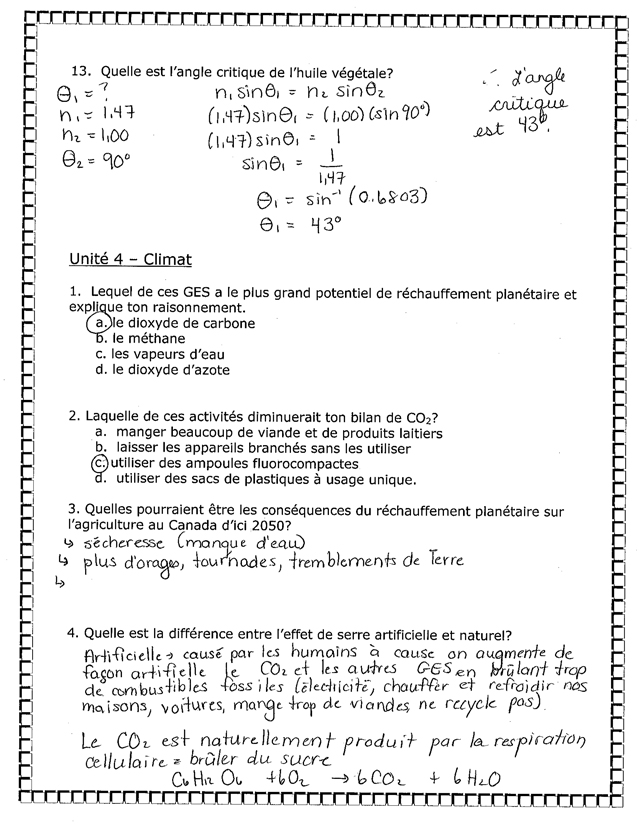 13. Quelle est l'angle critique de l'huile végétale?
θ₁ = ?
n₁ = 1,47
n₂ = 1,00
θ₂ = 90°
n₁ sinθ₁ = n₂ sinθ₂
(1,47)sinθ₁ = (1,00)(sin90°)
(1,47)sinθ₁ = 1
sinθ₁ = 1/1,47
θ₁ = sin⁻¹(0.6803)
θ₁ = 43°
∴ L'angle
critique
est 43°.
Unité 4 – Climat
1. Lequel de ces GES a le plus grand potentiel de réchauffement planétaire et
explique ton raisonnement.
a. le dioxyde de carbone
b. le méthane
c. les vapeurs d'eau
d. le dioxyde d'azote
2. Laquelle de ces activités diminuerait ton bilan de CO₂?
a. manger beaucoup de viande et de produits laitiers
b. laisser les appareils branchés sans les utiliser
c. utiliser des ampoules fluorocompactes
d. utiliser des sacs de plastiques à usage unique.
3. Quelles pourraient être les conséquences du réchauffement planétaire sur
l'agriculture au Canada d'ici 2050?
↳ sécheresse (manque d'eau)
↳ plus d'orages, tournades, tremblements de Terre
↳
4. Quelle est la différence entre l'effet de serre artificielle et naturel?
Artificielle → causé par les humains à cause on augmente de
façon artifielle le CO₂ et les autres GES en brûlant trop
de combustibles fossiles (électricité, chauffer et refroidir nos
maisons, voitures, mange trop de viandes, ne recycle pas)
Le CO₂ est naturellement produit par la respiration
cellulaire = brûler du sucre
C₆H₁₂O₆ + 6O₂ → 6CO₂ + 6H₂O